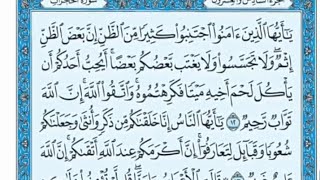 سُورَةُ الحُجُرَاتِ الجُزْءُ السَّادِسُ وَالعِشْرُونَ
يَٰٓأَيُّهَا ٱلَّذِينَ ءَامَنُوا۟ ٱجْتَنِبُوا۟ كَثِيرًا مِّنَ ٱلظَّنِّ إِنَّ بَعْضَ ٱلظَّنِّ
إِثْمٌ ۖ وَلَا تَجَسَّسُوا۟ وَلَا يَغْتَب بَّعْضُكُم بَعْضًا ۚ أَيُحِبُّ أَحَدُكُمْ أَن
يَأْكُلَ لَحْمَ أَخِيهِ مَيْتًا فَكَرِهْتُمُوهُ ۚ وَٱتَّقُوا۟ ٱللَّهَ ۚ إِنَّ ٱللَّهَ
تَوَّابٌ رَّحِيمٌ ١٢ يَٰٓأَيُّهَا ٱلنَّاسُ إِنَّا خَلَقْنَٰكُم مِّن ذَكَرٍ وَأُنثَىٰ وَجَعَلْنَٰكُمْ
شُعُوبًا وَقَبَآئِلَ لِتَعَارَفُوٓا۟ ۚ إِنَّ أَكْرَمَكُمْ عِندَ ٱللَّهِ أَتْقَىٰكُمْ ۚ إِنَّ ٱللَّهَ